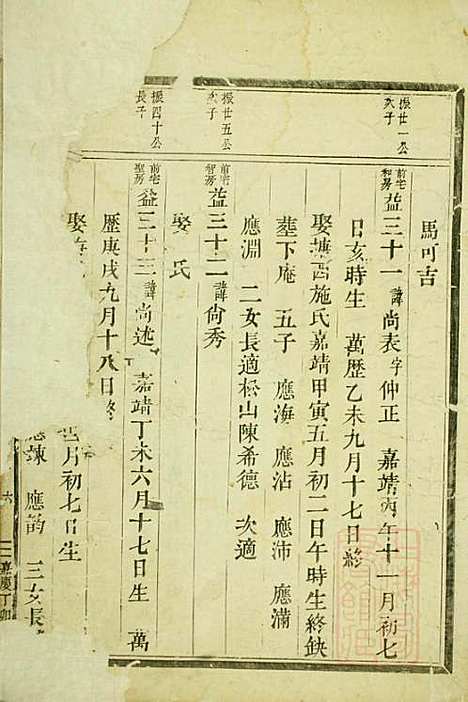 馬可吉
振廿一公次子
前宅和房 益三十一 諱尚表字仲正 嘉靖丙午十一月初七
日亥時生 萬歷乙未九月十七日終
娶 西施氏嘉靖甲寅五月初二日午時生終缺
塟下庵 五子 應海 應沾 應沛 應滿
應淵 二女長適松山陳希德 次適
振廿五公次子
前宅智房 益三十二 諱尚秀
娶 氏
振四十公長子
前宅聖房 益三十三 諱尚述 嘉靖丁未六月十七日生 萬
歷庚戌九月十八日終
娶
月初七日生
應 三女長
六
嘉慶丁卯